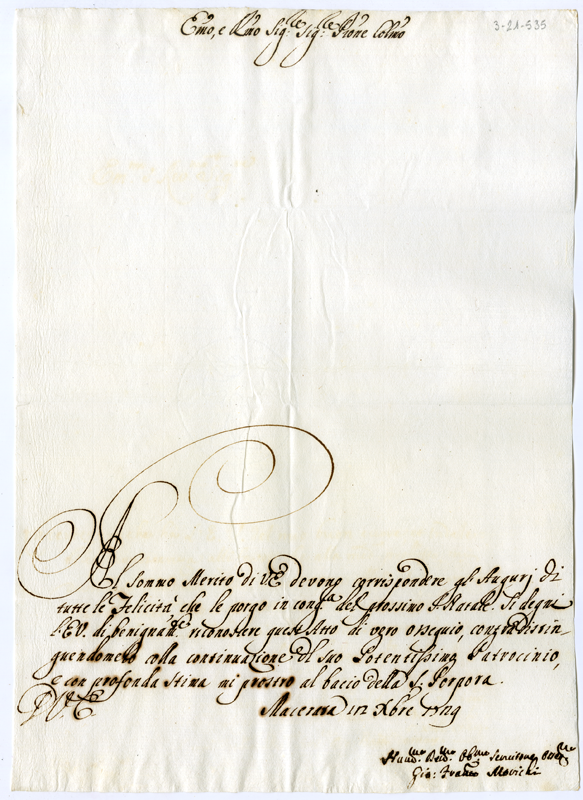 3-21-535
Emo, e Rmo Sig.re Sig.re Prone Colmo
Al Sommo Merito di V.E. devono corrispondere gli Augurj di
tutte le Felicità, che le porgo in cong.ra del prossimo S. Natale. Si degni
l'E.V. di benignam.te riconoscere quest'Atto di vero ossequio, contradistin-
guendomelo colla continuazione del suo Potentissimo Patrocinio,
e con profonda stima mi prostro al bacio della S. Porpora.
D. V. E.
Macerata 12 Xbre 1724
Hum.mo Dev.mo Obb.mo Servitore
Gio: Franco